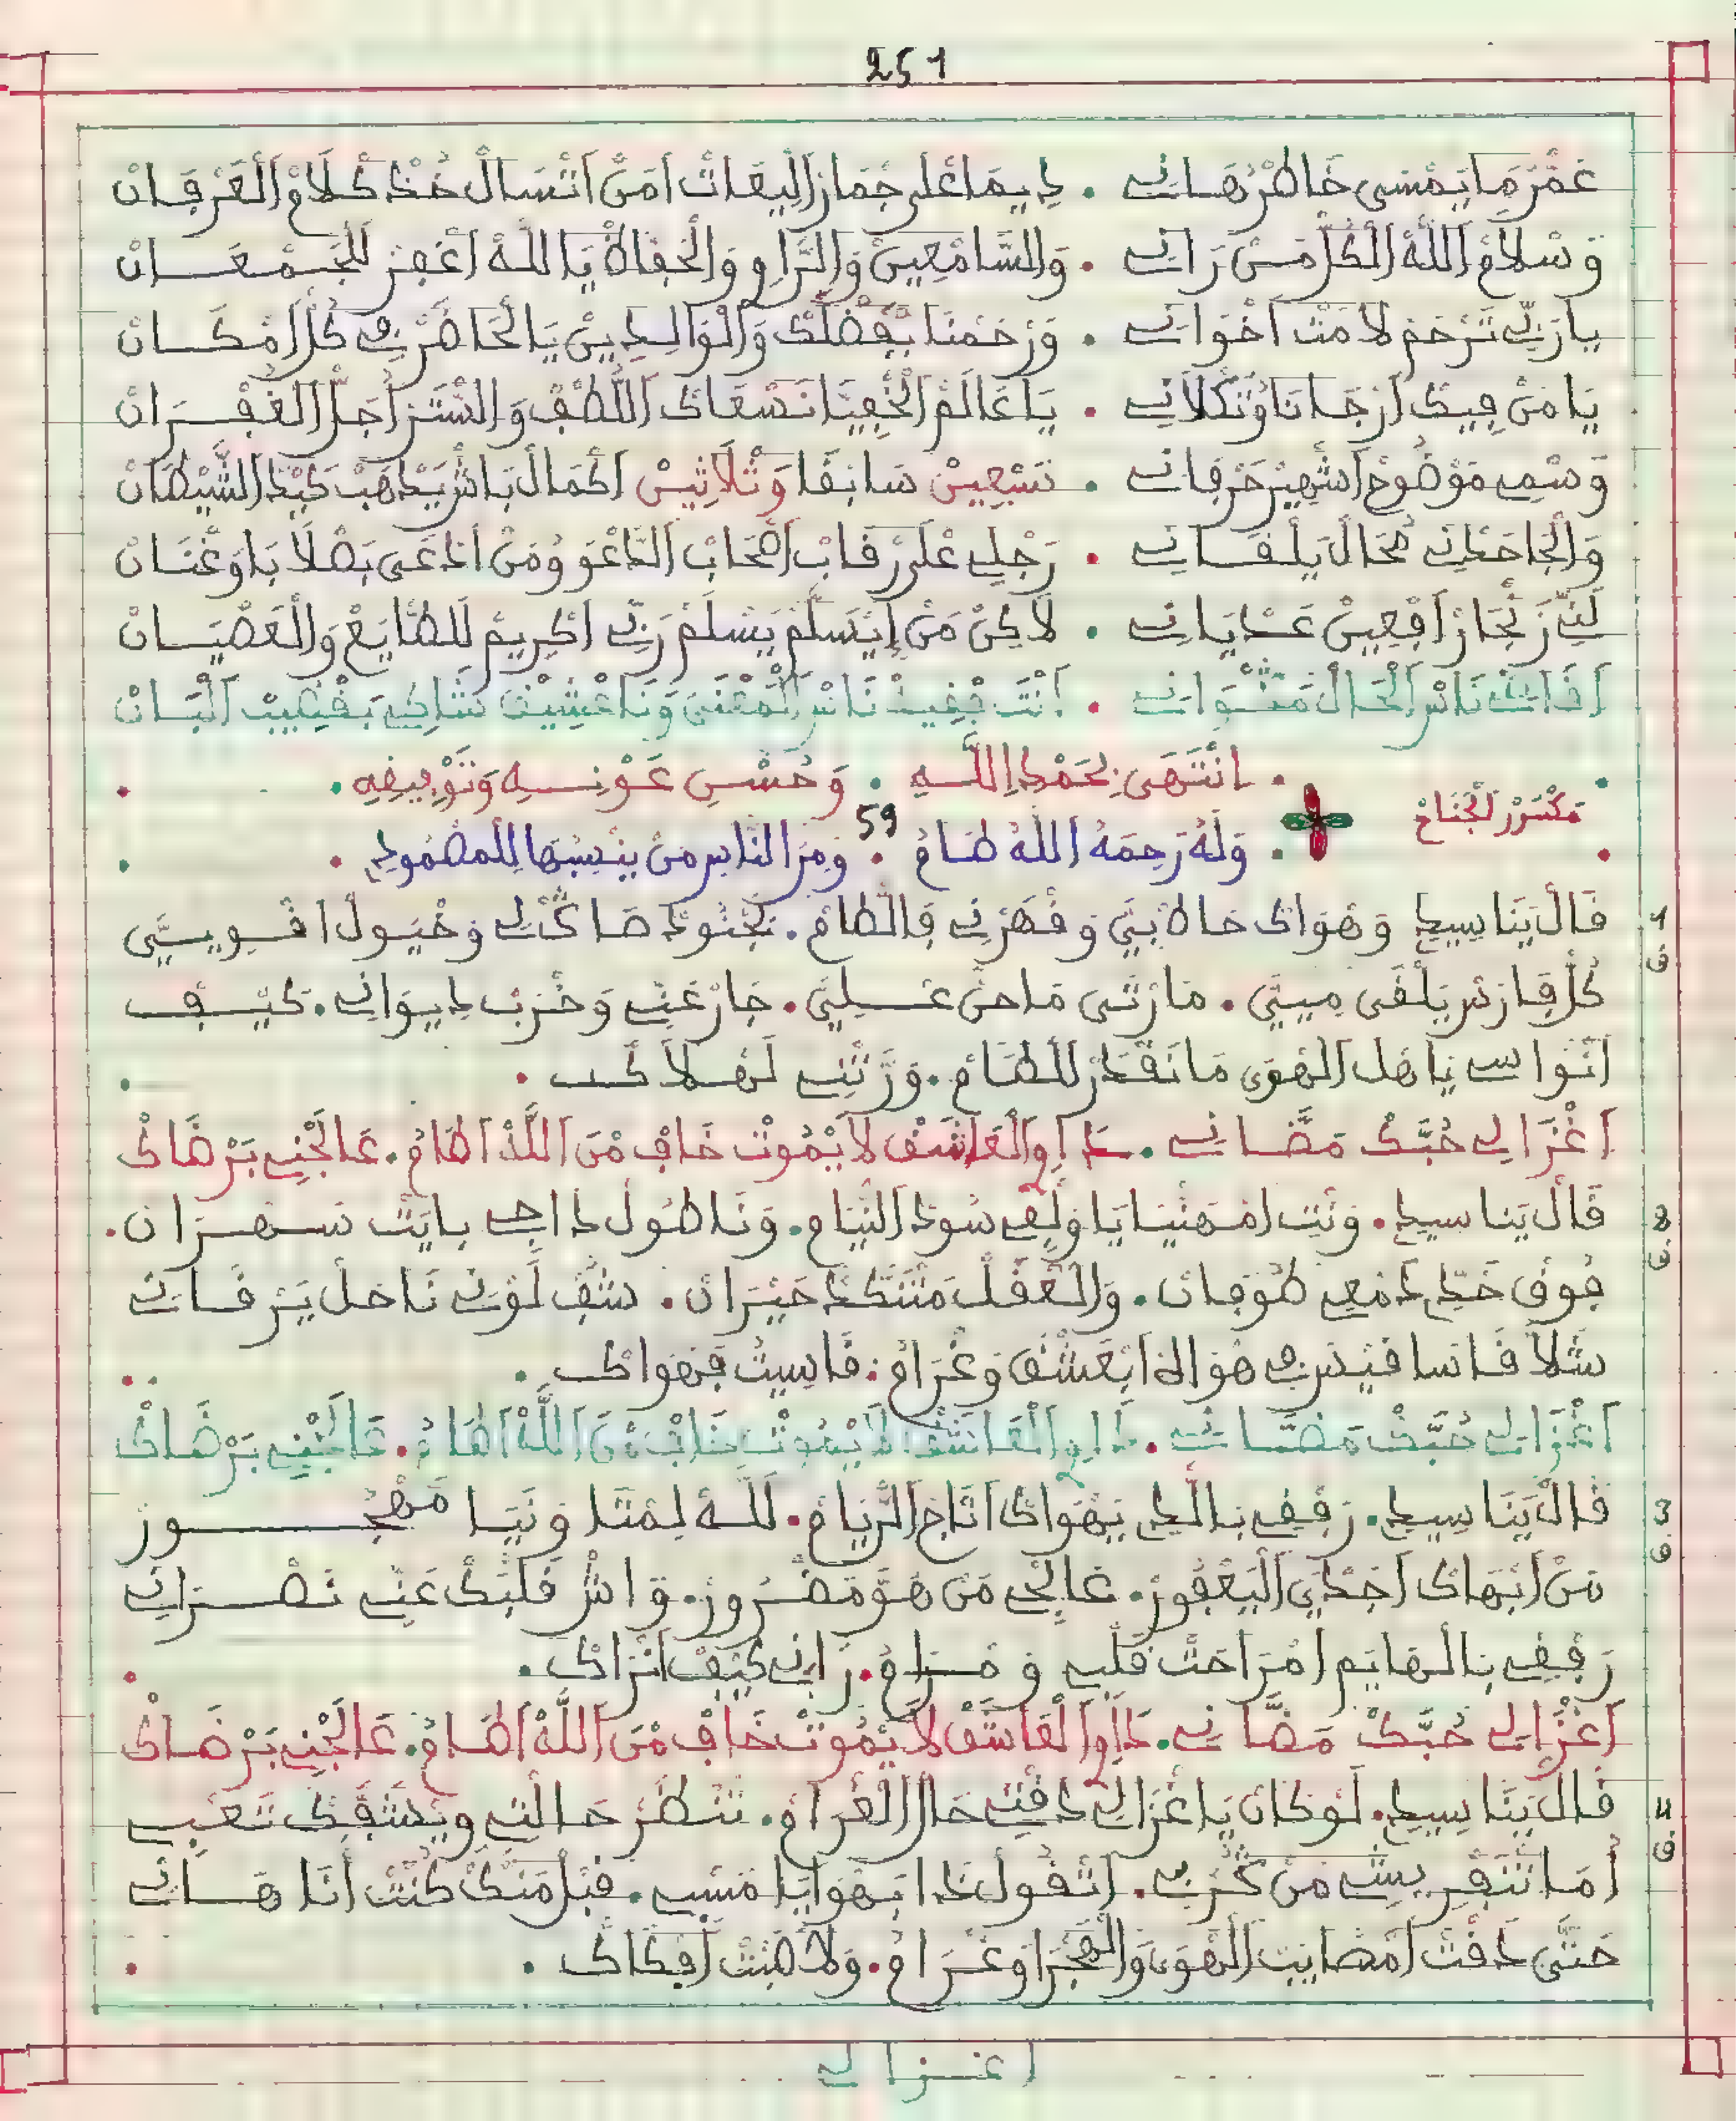 251
عَمَّرْ مَا يَمْشِي خَاطْرْ هَانِي . دِيمَا عْلَى جْمَارْ اَلْبِيعَاتْ اَمَنْ اَتْسَالْ خُذْ كْلَامْ اَلْعَرْفَانْ
وَسْلَامْ اَللَّهْ اَلْكُلّ مَنْ رَانِي . وَالسَّامْعِينْ وَالرَّاوِ وَالْحُفَّاظْ يَا اللهْ اَغْفِرْ لَلْجَمْعَانْ
يَا رَبِّي تَرْحَمْ لَامَتْ اَخْوَانِي . وَرْحَمْنَا بْفَضْلَكْ وَالْوَالِدِينْ يَا الْحَاضَرْ فِي كُلّ اَمْكَانْ
يَا مَنْ فِيكْ اَرْجَانَا وُتَكْلَانِي . يَا عَالَمْ الْخْفِيَا نَسْعَاكْ اَللُّطْفْ وَالسَّتَرْ اَجَلّ الْغُفْرَانْ
وَسْمِي مَوْضُوحْ اَشْهِيرْ حَرْفَانِي . تَسْعِينْ سَابْقَا وَثْلَاثِينْ اَكْمَالْ بَاشْ يَدْهَبْ كَيْدْ اَلشَّيْطَانْ
وَالْجَاحَدْنِي مُحَالْ يَلْقَانِي . رَجْلِي عْلَى رْقَابْ اَصْحَابْ اَلدَّعْوَ وُمَنْ اَدْعَى بَصْلَابَا وَعْنَانْ
لَنِّي زَنْجَارْ اَفْعِينْ عَدْيَانِي . لَاكِنْ مَنْ اِيْتْسَلَّمْ يَسْلَمْ رَبِّي اَكْرِيمْ لَلطَّايَعْ وَالْعَصْيَانْ
اَفَاتَنْ نَاسْ اَلْحَالْ مَتْوَانِي . اَنْتَ بْغِيدْ نَاسْ اَلْمَعْنَى وَنَا عْشِيقْ شَاكِي بَقْضِيبْ اَلْبَانْ
اِنْتَهَى بِحَمْدِ اللَّهِ . وَحُسْنِ عَوْنِهِ وَتَوْفِيقِهِ .
مَكْسُورْ اَلْجَنَاحْ
59
وَلَهُ رَحِمَهُ اللَّهُ طَامُ . وَمِنَ النَّاسِ مَنْ يَنْسِبُهَا لِلْمَصْمُودِي .
1 ق
قَالْ يَنَا سِيدِي وَهْوَاكْ حَاطْ بِيَّ وَقْهَرْنِي فَالطَّامْ . بَجْنُودْ صَاكْلِي وَخْيُولْ اقْوِيَّى
كُلّ فَارَسْ يَلْقَى مِيتَيَّ . مَا رْثَى مَا حَنْ عْلِيَّ . جَارْ عَنِّي وَخْرَبْ دِيوَانِي . كَيْفْ
اَنْوَاسِي يَاهَلْ اَلْهْوَى مَا نَقْدَرْ لَلطَّامْ . وَرَّثْنِي لَهْلَاكْ .
اَغْزَالِي حُبَّكْ مَضَّانِي . دَاوِ اَلْعَاشَقْ لَا يْمُوتْ خَافْ مْنَ اَللَّهْ اَطَامُ . عَالَجْنِي بَرْضَاكْ
2 ق
قَالْ يَنَا سِيدِي . وَنْتِ امْهَنْيَا يَا وَلْفِي سُودْ اَلنْيَامْ . وَنَا طُولْ دَاجِي بَايَتْ سَهْرَانْ .
فُوقْ خَدِّي دَمْعِي طُوفَانْ . وَالْعْقَلْ مَتْنَكَّدْ حَيْرَانْ . شُفْ لَوْنِي نَاحَلْ يَرْقَانِي
شَلَّا قَاسَا قَيْسْ فِي هْوَالُهْ اَبْعَشْقْ وَغْرَامْ . قَاسِيتْ فَهْوَاكْ .
اَغْزَالِي حُبَّكْ مَضَّانِي . دَاوِ اَلْعَاشَقْ لَا يْمُوتْ خَافْ مْنَ اَللَّهْ اَطَامُ . عَالَجْنِي بَرْضَاكْ
3 ق
قَالْ يَنَا سِيدِي . رَفْقِي بَالَّدِي يَهْوَاكْ اَتَاجْ اَلرْيَامْ . لَلَّهْ لِمْتَا وَنَيَا مَهْجُورْ
مَنْ اَبْهَاكْ اَجْدْيِ اَلْيَعْفُورْ . عَالْجِي مَنْ هُوَّ مَضْرُورْ . وَاشْ قَلْبَكْ عَنِّي نَصْرَانِي
رَفْقِي بَالْهَايَمْ اَمْرَاحَتْ قَلْبِي وَمْرَامْ . رَانِي كِيفْ اَنْرَاكْ .
اَغْزَالِي حُبَّكْ مَضَّانِي . دَاوِ اَلْعَاشَقْ لَا يْمُوتْ خَافْ مْنَ اَللَّهْ اَطَامُ . عَالَجْنِي بَرْضَاكْ
4 ق
قَالْ يَنَا سِيدِي . لَوْكَانْ يَا غْزَالِي دَقْتِي حَالْ اَلْغْرَامْ . تَنْظَرْ حَالْتِي وِيْشَفَّكْ تَعْبِي
اُمَا تَنَفْرِيشِي مَنْ قُرْبِي . اَتْقُولْ دَا ابْهْوَايَا مَسْبِي . قَبْلْ مَنَّكْ كُنْتْ اَنَا هَانِي
حَتَّى دَقْتْ اَمْصَايَبْ اَلْهْوَى وَالْهَجْرَا وَغْرَامْ . وَلَا صَبْتْ اَفْكَاكْ .
اغزالي